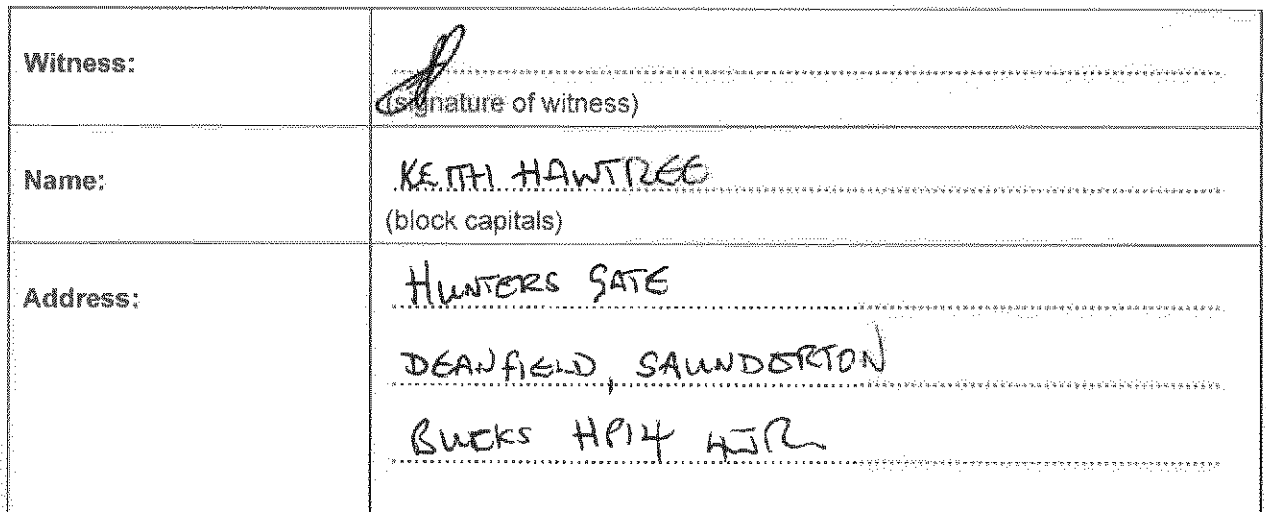 Witness:
(signature of witness)
Name:
KEITH HAWTREE
(block capitals)
Address:
HUNTERS GATE
DEANFIELD, SAUNDERTON
BUCKS HP14 4JR